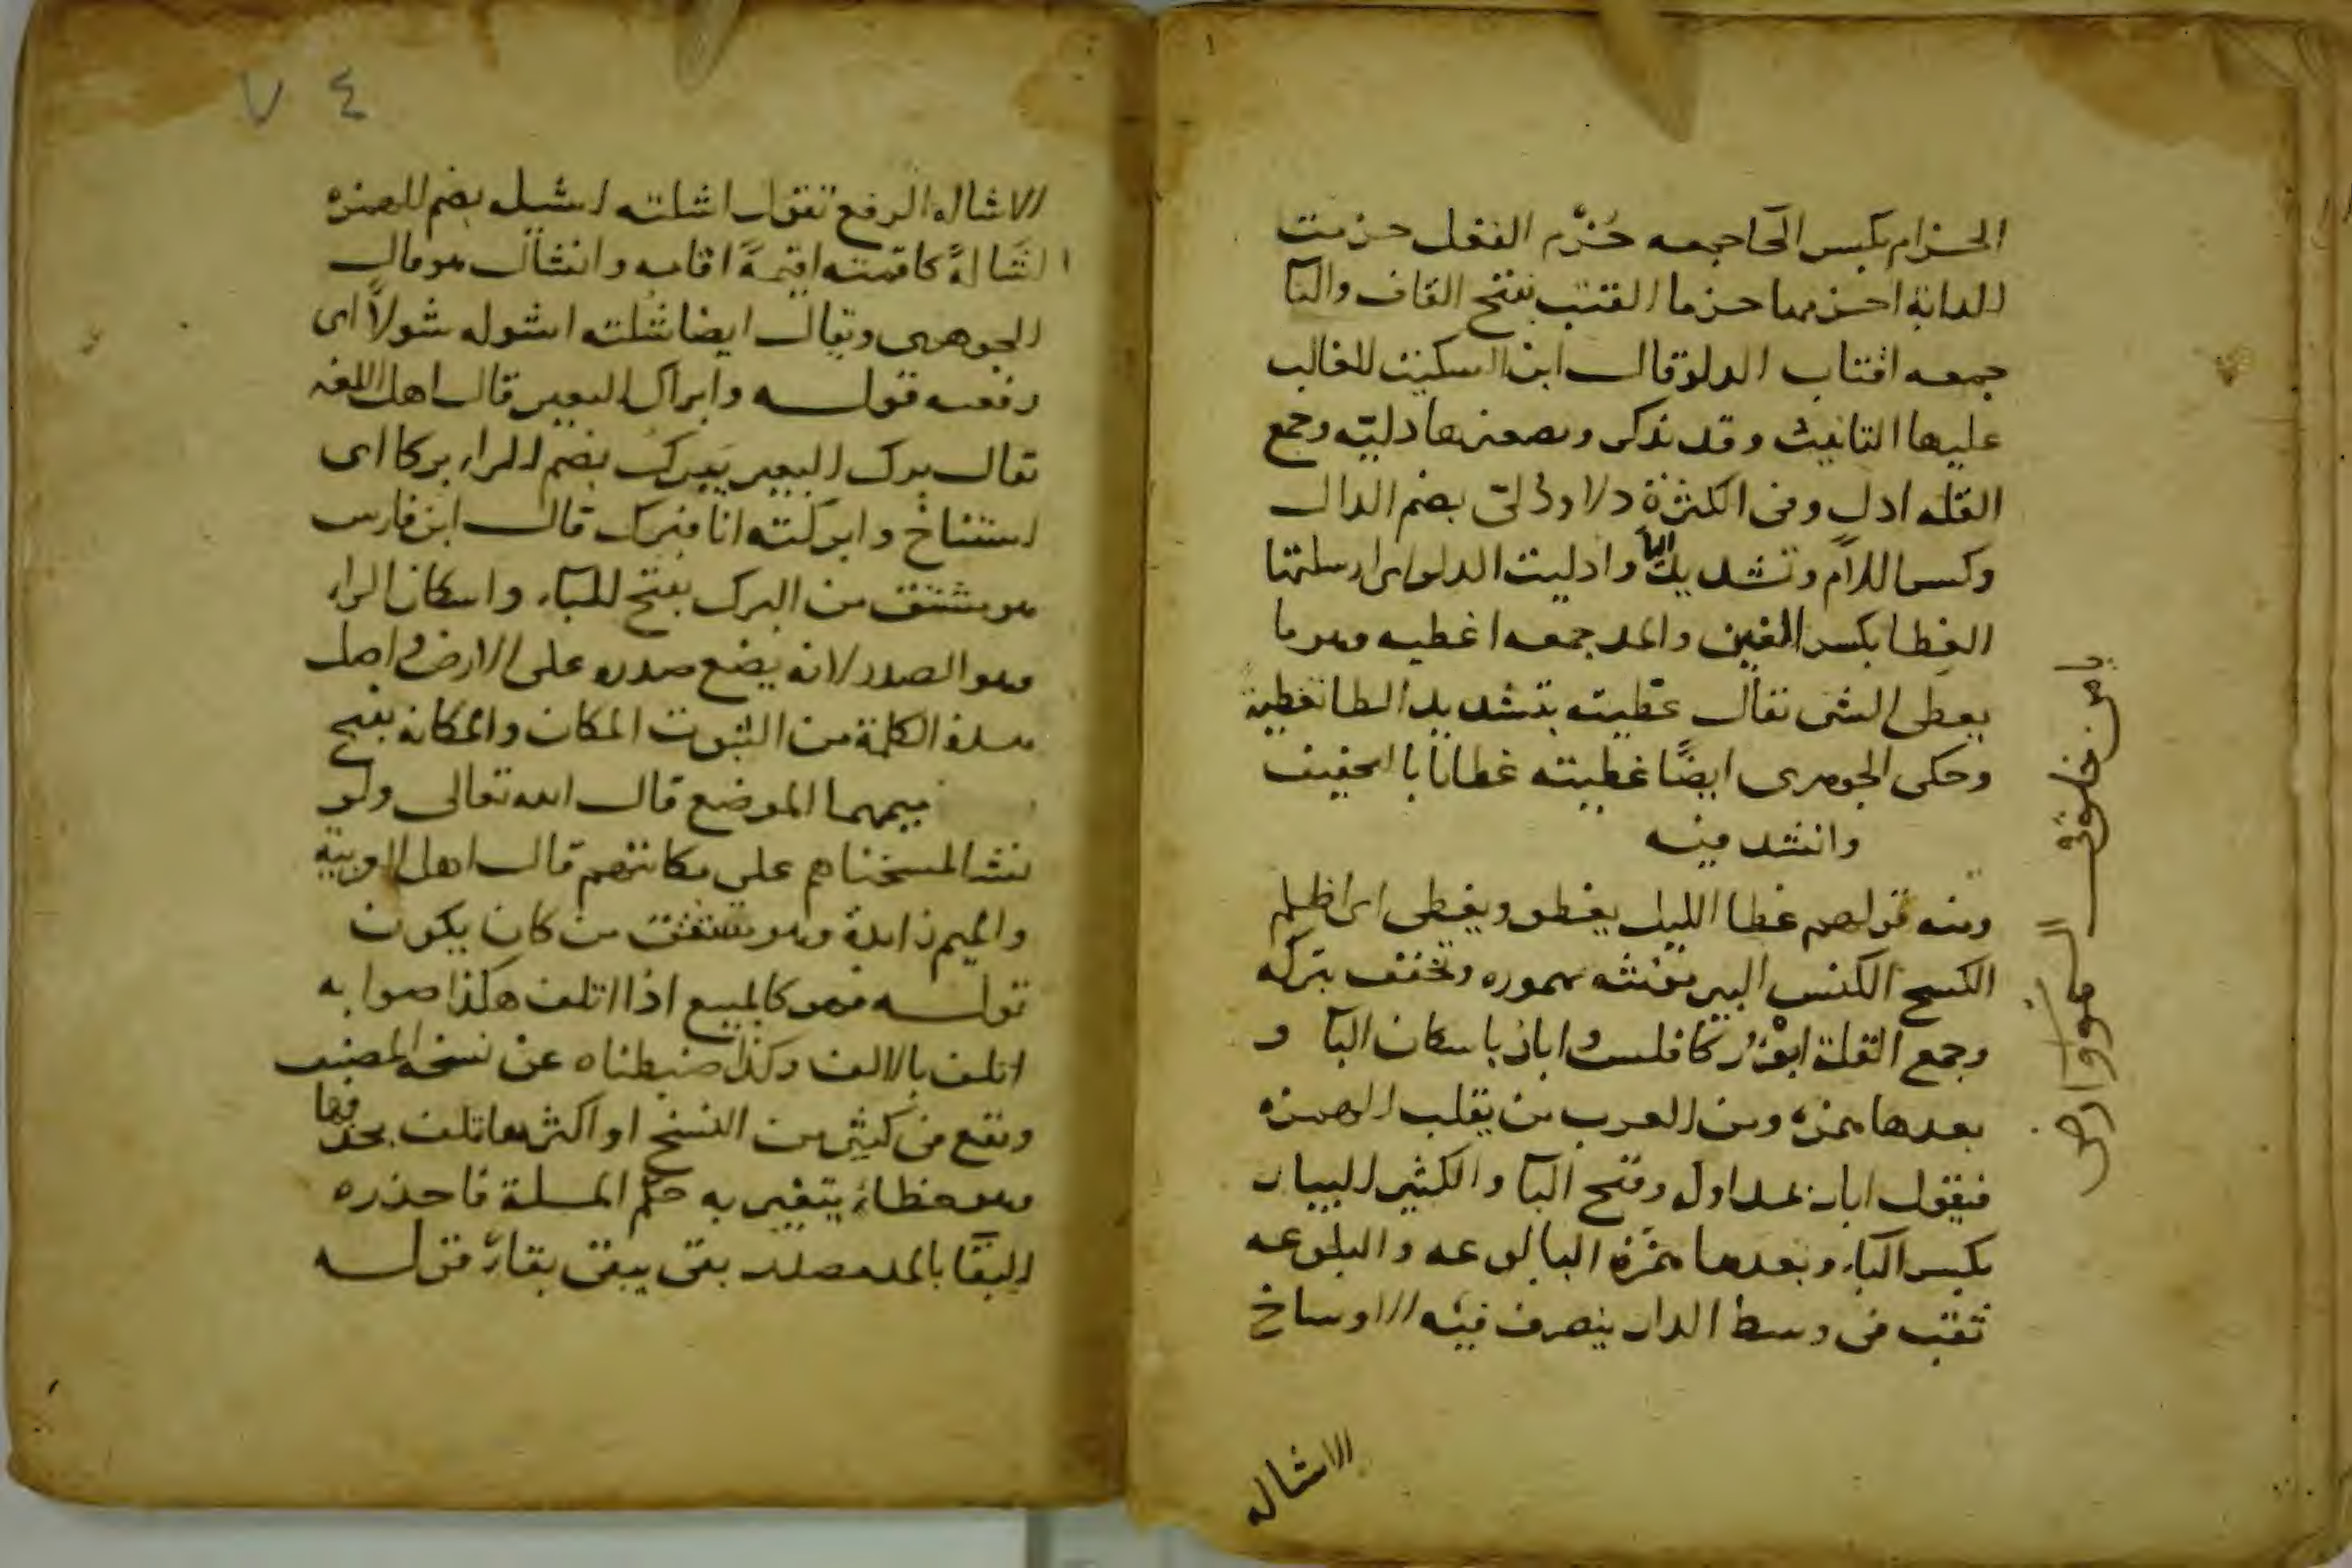 الحزام بكسر الحآ جمعه حُزْم الفعل حزمت
الدابة احزمها حزما القتب بفتح القاف والتآ
جمعه اقتاب الدلو قال ابن السكيت الغالب
عليها التانيث وقد تذكر وتصغيرها دليّه وجمع
القله ادل وفي الكثرة دلا ودلىّ بضم الدال
وكسر اللام وتشديد اليآ وادليت الدلو اى ارسلتها
الغطا بكسر الغين والمد جمعه اغطيه وهو ما
يغطى الشى تقال غطيته بتشديد الطا تغطية
وحكى الجوهرى ايضًا غطيته غطانا بالتخفيف
وانشد فيه
ومنه قولهم غطا الليل يغطو ويغطى اى اظلم
الكسح الكنس البير مونثه مهموره وتخفف بتركه
وجمع القلة ابؤر كافلس وابار باسكان البآ و
بعدها همزه ومن العرب من يقلب الهمزه
فيقول ابار بمد اوله وفتح البآ والكثير البيار
بكسر الباء وبعدها همزة البالوعه والبلوعه
ثقب فى وسط الدار ينصرف فيه الاوساخ
الاشاله
٧٤
الاشاله الرفع تقول اشلته اشيله بضم الهمزه
اشالةً كاقمته اقيمه اقامه وانشال هو قال
الجوهرى ويقال ايضا شلته اشوله شولاً اى
رفعه قوله وابراك البعير قال اهل اللغه
تقال برك البعير يَبرك بضم الراء بركا اى
استناخ وابركته انا فبرك قال ابن فارس
هو مشتق من البرك بفتح الباء واسكان الراء
وهو الصدر لانه يضع صدره على الارض واصل
هذه الكلمة من الثبوت المكان والمكانه بفتح
ميمهما الموضع قال الله تعالى ولو
نشا لمسخناهم على مكانتهم قال اهل العربية
والميم زايدة وهو مشتق من كان يكون
قوله فهو كالمبيع اذا اتلف هكذا صوابه
اتلف بالالف وكذا ضبطناه عن نسخه المصنف
ويقع فى كثير من النسخ او اكثرها تلف بحذفها
وهو خطاء يتغير به حكم المسلة فاحذره
البقآ بالمد مصدر بقى يبقى بقاءً قوله